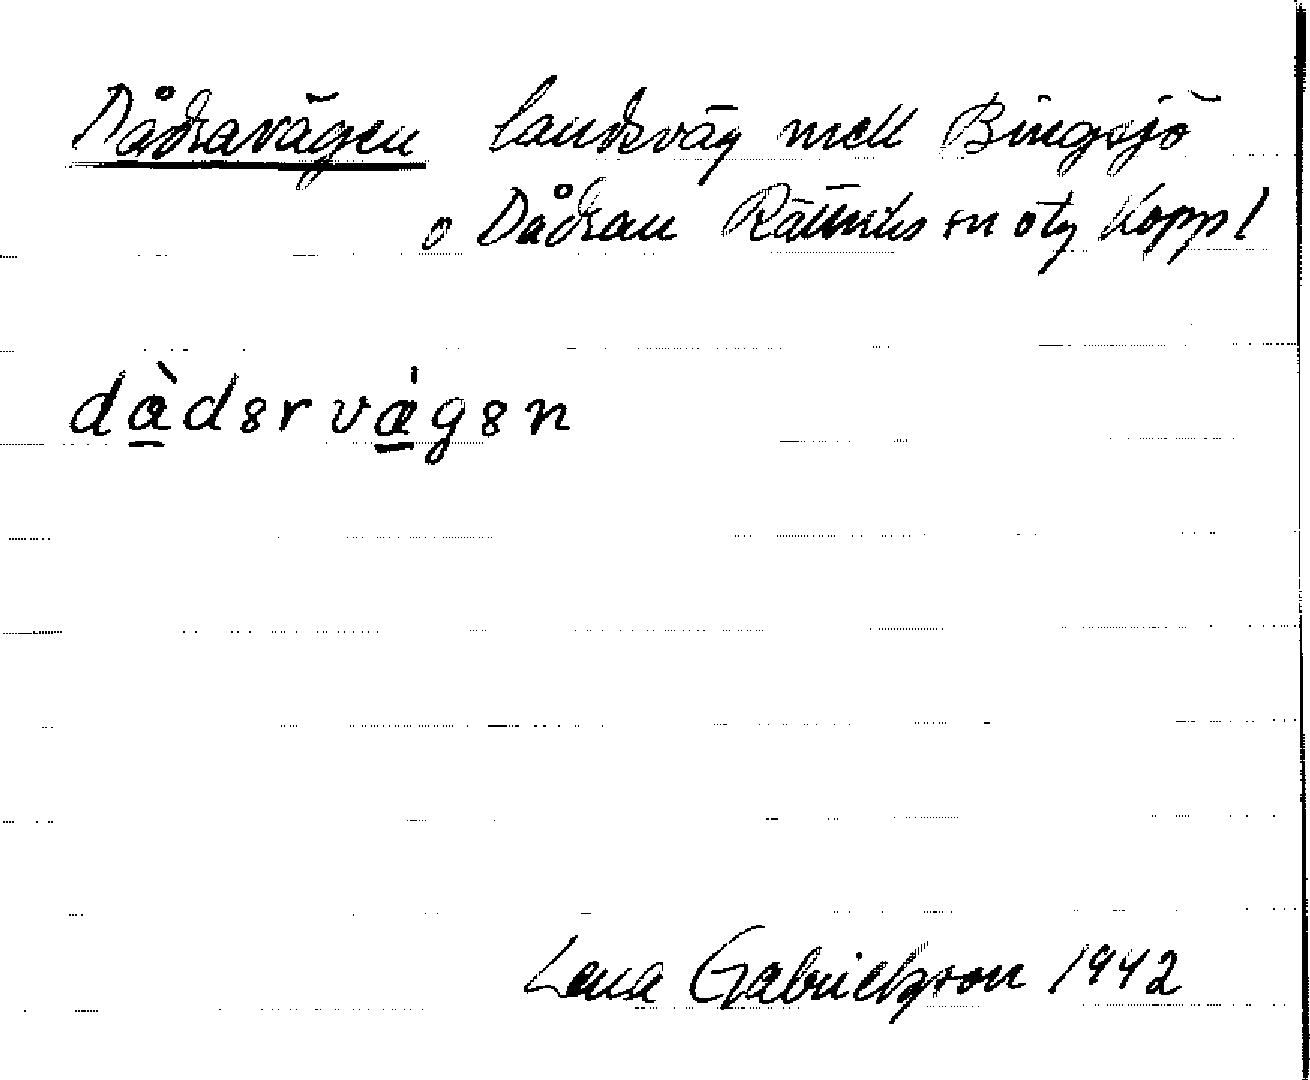 Dådravägen landsväg mell Bingsjö
o Dådran Rättviks sn o tg Koppl
dàdər vǽgən
Lena Gabrielsson 1942